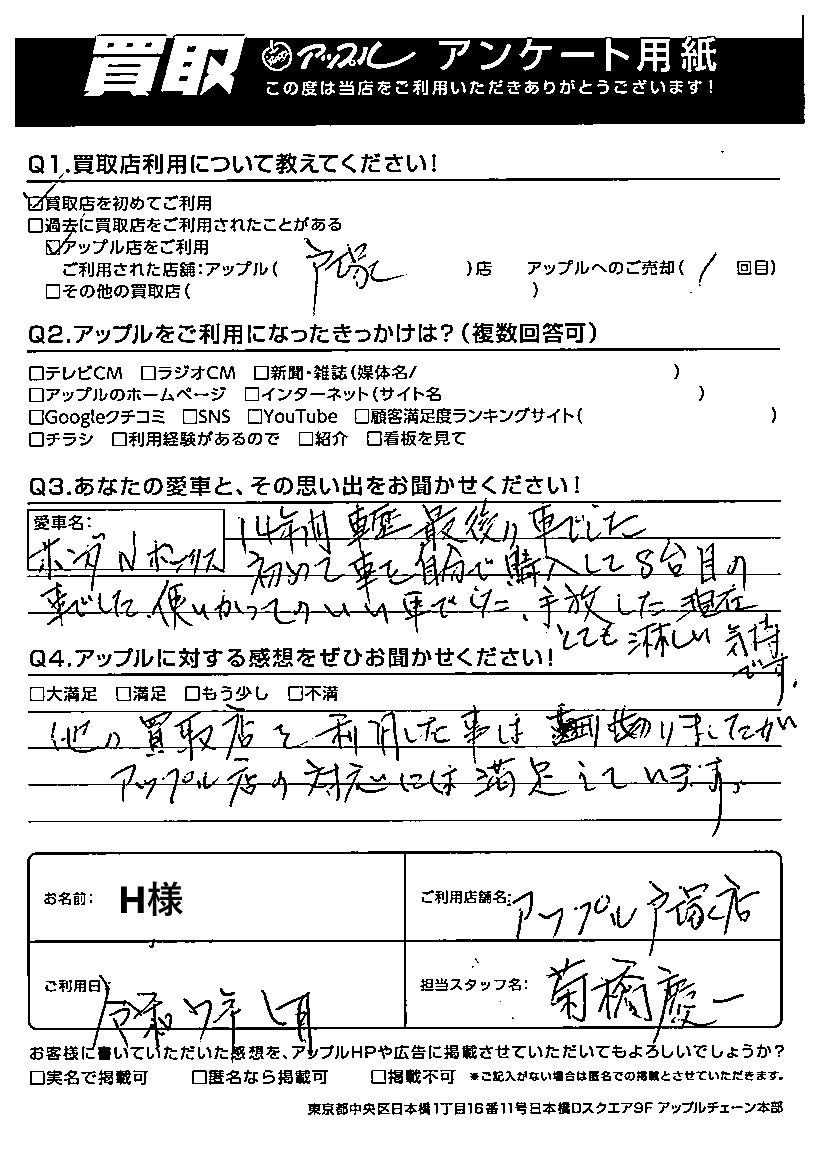 買取 アップル アンケート用紙
この度は当店をご利用いただきありがとうございます!
Q1.買取店利用について教えてください!
☑買取店を初めてご利用
□過去に買取店をご利用されたことがある
☑アップル店をご利用
ご利用された店舗:アップル( 戸塚 )店 アップルへのご売却( 1 回目)
□その他の買取店( )
Q2.アップルをご利用になったきっかけは?(複数回答可)
□テレビCM □ラジオCM □新聞・雑誌(媒体名/ )
□アップルのホームページ □インターネット(サイト名 )
□Googleクチコミ □SNS □YouTube □顧客満足度ランキングサイト( )
□チラシ □利用経験があるので □紹介 □看板を見て
Q3.あなたの愛車と、その思い出をお聞かせください!
愛車名:
ホンダ Nボックス
14年間 車歴 最後の車でした
初めて車を自分で購入して8台目の
車でした、使いかってのいい車でした、手放した現在
とても淋しい気持
です。
Q4.アップルに対する感想をぜひお聞かせください!
□大満足 □満足 □もう少し □不満
他の買取店を利用した事は 有りましたが
アップル店の対応には満足しています。
お名前: H様
ご利用店舗名: アップル戸塚店
ご利用日: 令和7年1月
担当スタッフ名: 菊橋慶一
お客様に書いていただいた感想を、アップルHPや広告に掲載させていただいてもよろしいでしょうか?
□実名で掲載可 □匿名なら掲載可 □掲載不可 ※ご記入がない場合は匿名での掲載とさせていただきます。
東京都中央区日本橋1丁目16番11号日本橋Dスクエア9F アップルチェーン本部